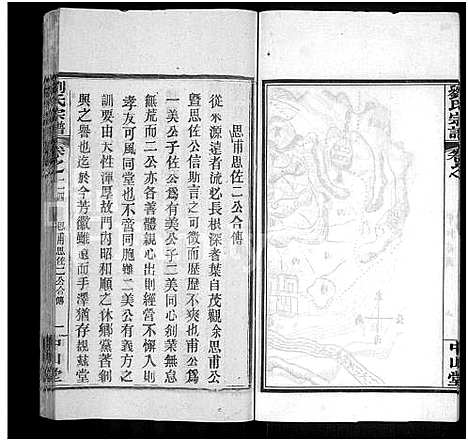 劉氏宗譜
卷之
中山堂
思甫思佐二公合傳
從來源遠者流必長根深者葉自茂觀余思甫公
曁思佐公信斯言之可徵而歷歷不爽也甫公爲
一美公子佐公爲有美公子二美同心創業無怠
無荒而二公亦各善體親心出則經營不懈入則
孝友可風同堂也不啻同胞雖二美公有義方之
訓要由大性渾厚故門內昭和順之休鄉黨著創
興之譽也迄於今芳徽雖遠而手澤猶存覩茲堂
劉氏宗譜
卷之
思甫思佐二公合傳
一
中山堂